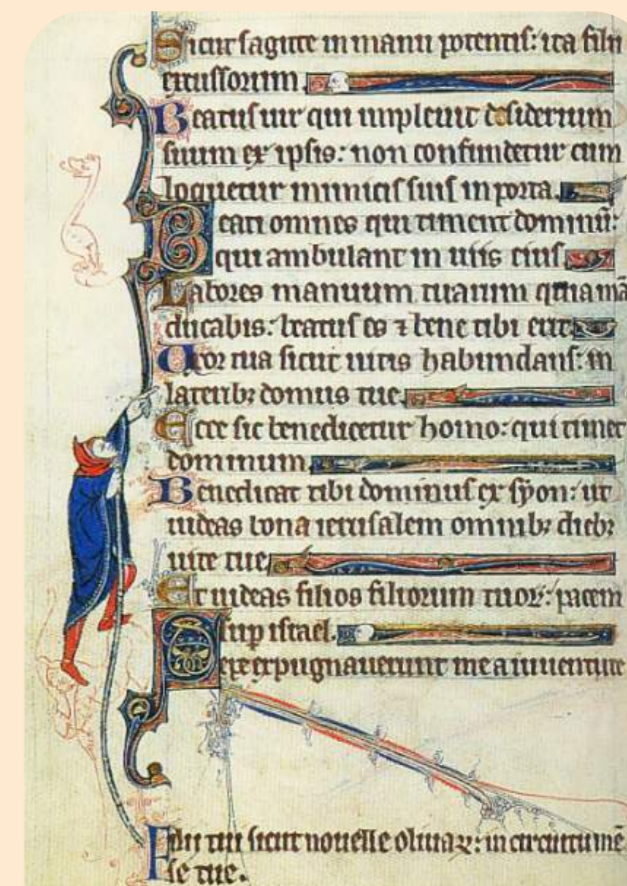 Sicut sagitte in manu potentis: ita filii
excussorum
Beatus uir qui impleuit desiderium
suum ex ipsis: non confundetur cum
loquetur inimicis suis in porta.
Beati omnes qui timent dominū:
qui ambulant in uiis eius
Labores manuum tuarum quia mā
ducabis: beatus es ⁊ bene tibi erit
Uxor tua sicut uitis habundans: in
laterib; domus tue
Ecce sic benedicetur homo: qui timet
dominum
Benedicat tibi dominus ex syon: ut
uideas bona ierusalem omnib; dieb;
uite tue
Et uideas filios filiorum tuoꝝ: pacem
sup israel.
Sepe expugnauerunt me a iuuentute
Filii tui sicut nouelle oliuaꝝ: in circuitu mē
se tue.